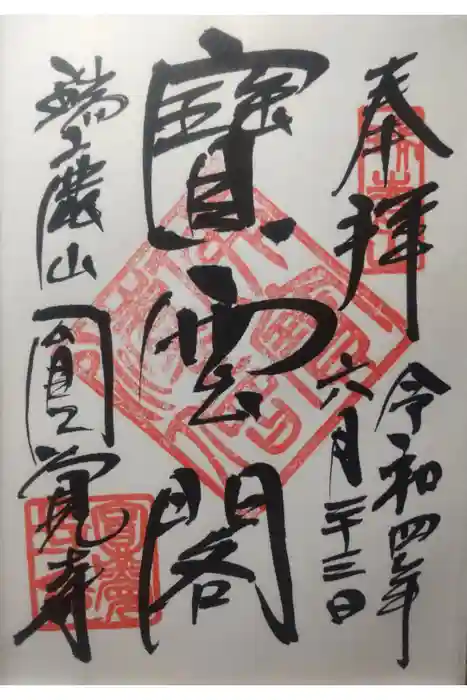 奉拝
令和四年
六月二十三日
寶雲閣
瑞巌山
圓覚寺